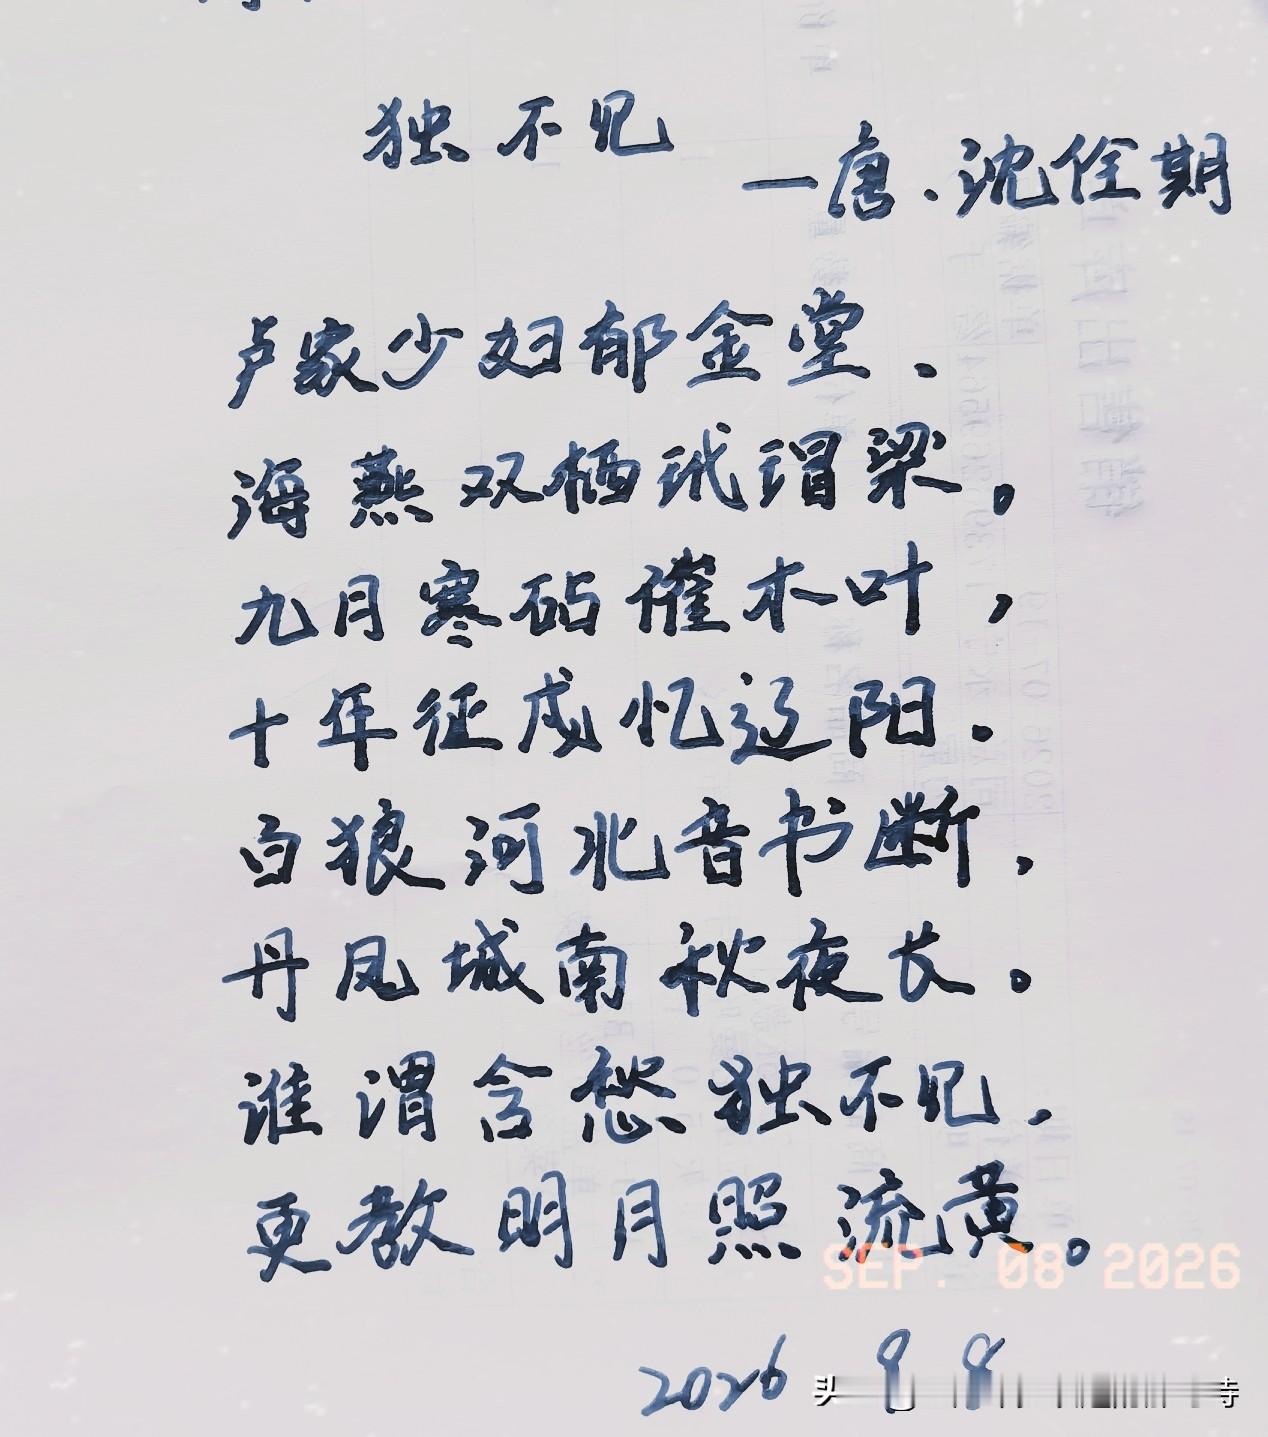 独不见
一唐.沈佺期
卢家少妇郁金堂、
海燕双栖玳瑁梁。
九月寒砧催木叶，
十年征戍忆辽阳.
白狼河北音书断，
丹凤城南秋夜长。
谁谓含愁独不见，
更教明月照流黄。
SEP. 08 2026
2026 9
头